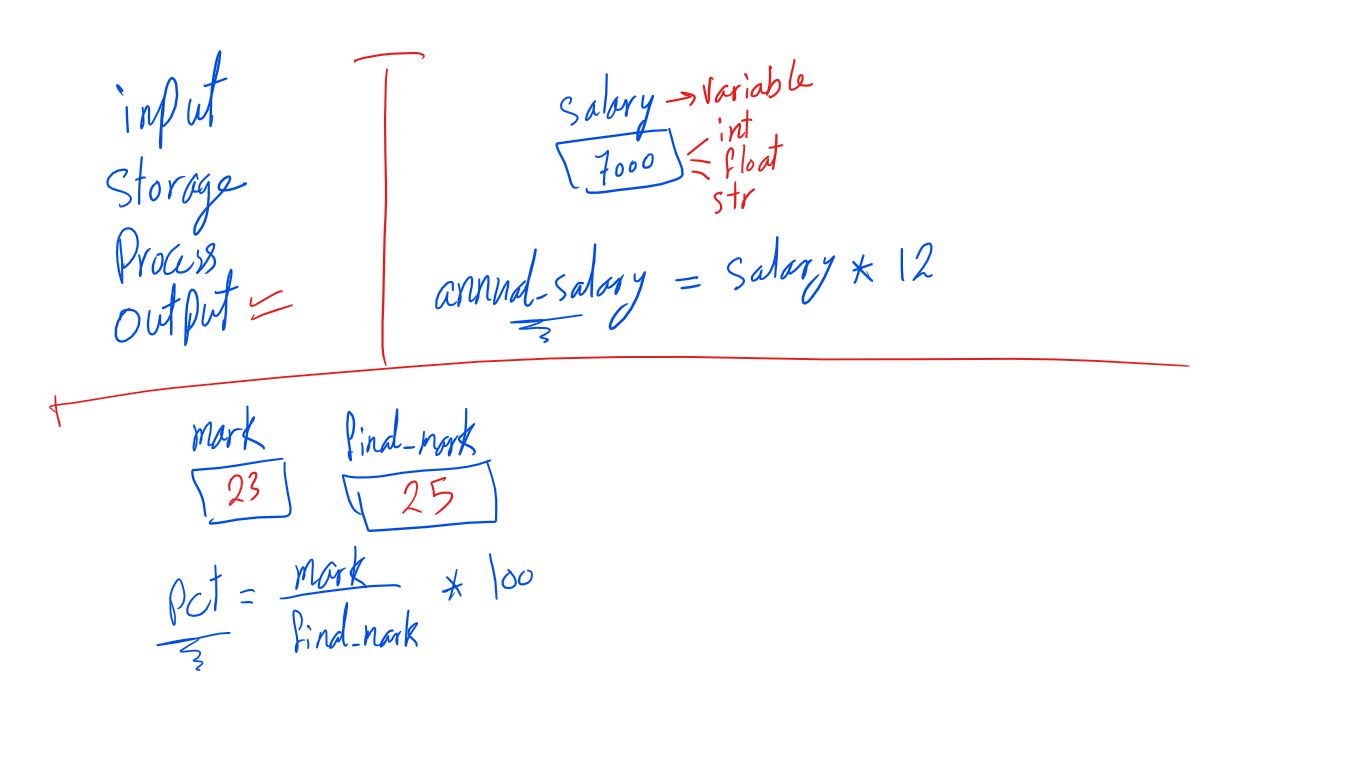 input
Storage
Process
output
salary → variable
7000
int
float
str
annual_salary = salary * 12
mark
final_mark
23
25
Pct = mark / final_mark * 100